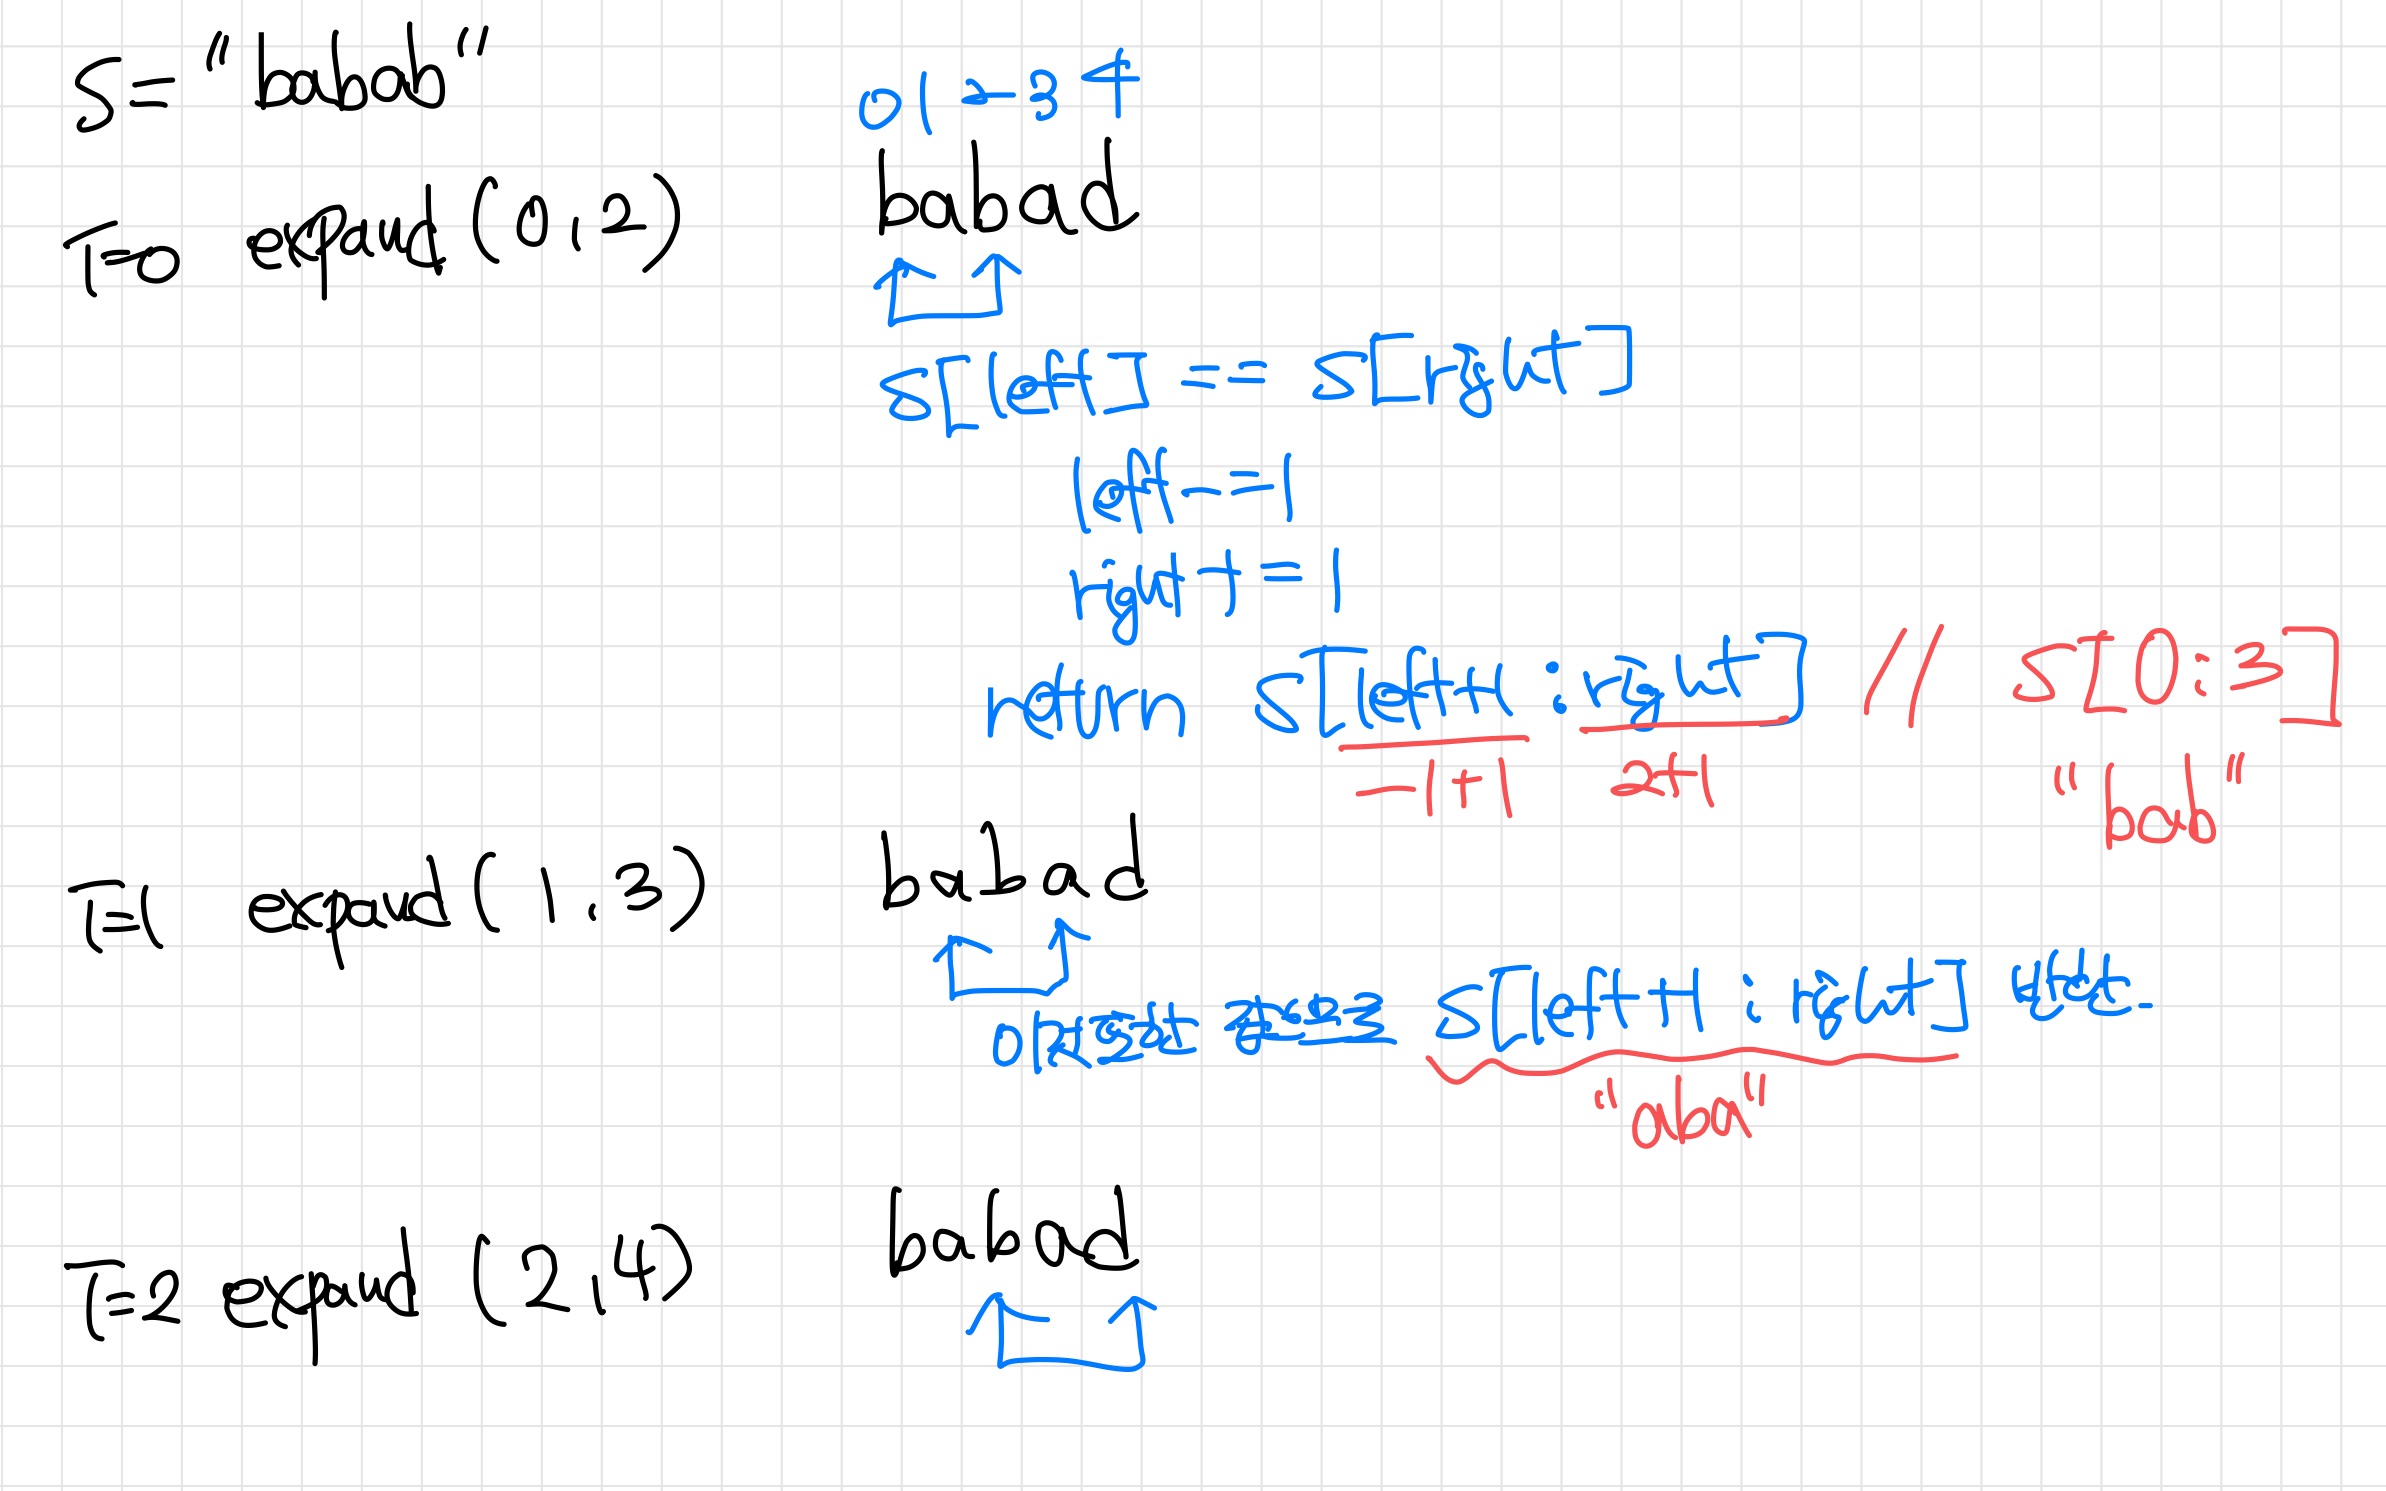 S = "babab"
0 1 2 3 4
babad
I=0 expand (0, 2)
S[left] == S[right]
left -= 1
right += 1
return S[left+1 : right] // S[0:3]
-1+1 2+1
"bab"
I=1 expand (1, 3) babad
S[left+1 : right]
"aba"
I=2 expand (2, 4) babad